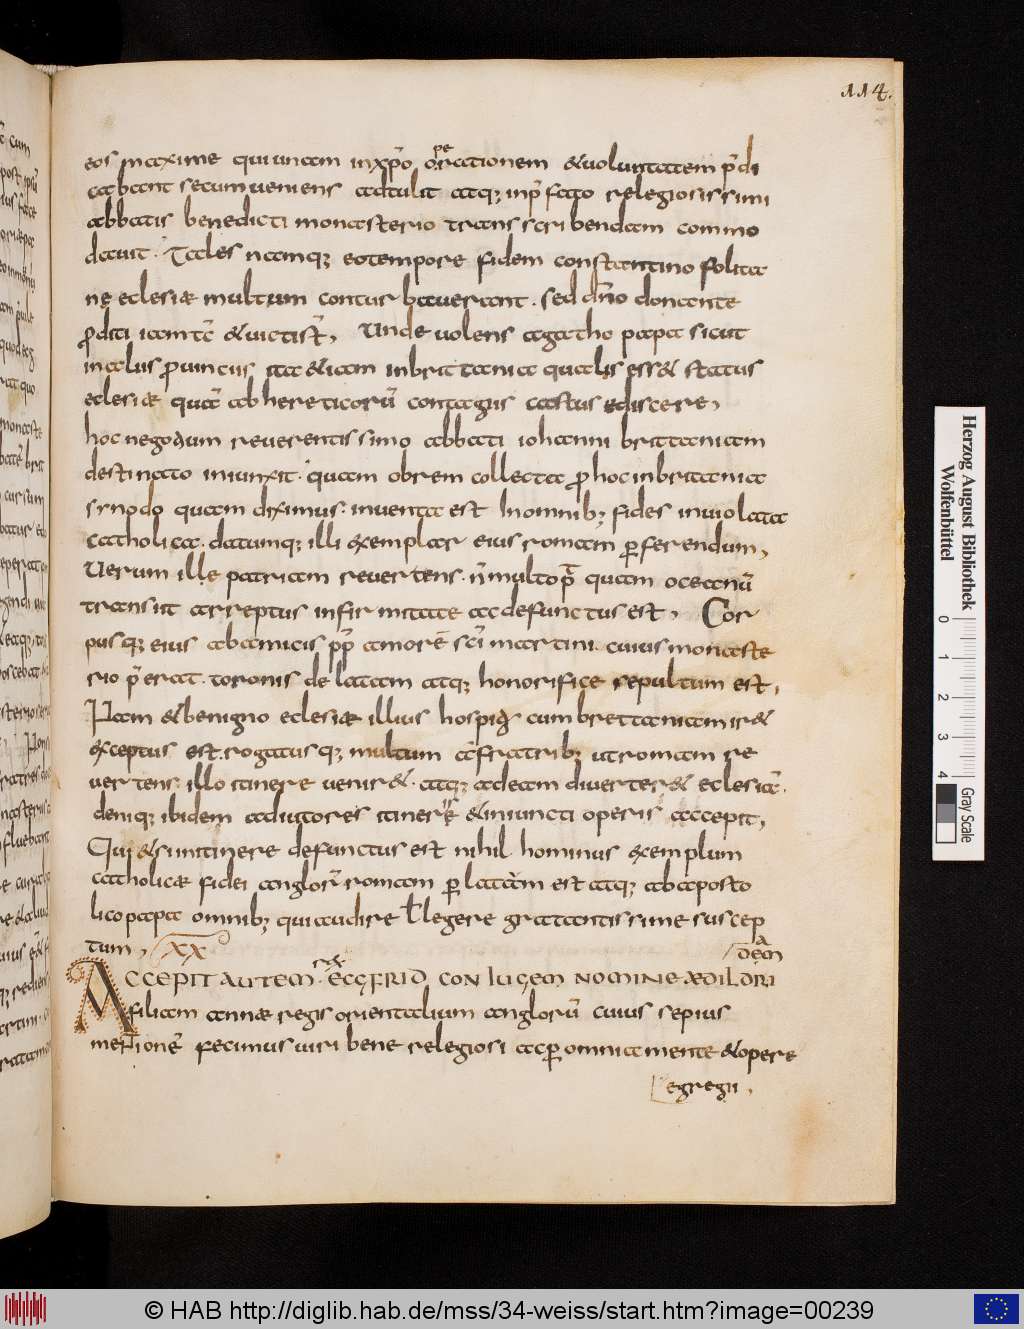 114.
eos maxime qui unam inxp̄o operationem &uoluntatem p̄di
cabant secum ueniens adtulit atq; inp̄fato relegiosissimi
abbatis benedicti monasterio transscribendam commo
dauit. Tales namq; eotempore fidem constantino polita
nę eclesiæ multum conturbauerant. sed dn̄o donante
proditi iam tc̄ &uicti st̄, Unde uolens agatho papa sicut
in alus prouincus ita &iam inbrittania qualis ess& status
eclesiæ quā ab hereticorū contagus castus ediscere,
hoc negotium reuerentissimo abbati iohanni brittaniam
destinato iniunxit. quam obrem collecta pro hoc inbritania
synodo quam diximus. inuenta est Inomnib; fides inuiolata
catholica. datumq; illi exemplar eius romam perferendum,
Uerum ille patriam reuertens. n̄multo p̄ quam oceanū
transiit arreptus infirmitate ac defunctus est, Cor
pusq; eius abamicis pp̄ amorē sc̄i martini. cuius monaste
rio p̄erat. toronis delatam atq; honorifice sepultum est,
Nam &benigno eclesiæ illius hospitio cum brettaniam ir&
exceptus est. rogatusq; multum afratrib; utromam re
uertens. illo itinere uenir&. atq; adeam diuerter& eclesiā.
deniq; ibidem adiutores itineris &iniuncti operis accepit,
Qui &si initinere defunctus est nihil hominus exemplum
catholicæ fidei anglor̄ romam perlatam est atq; abaposto
lico papa omnib; qui audire ł legere gratantissime suscep
tum, XX
ACCEPIT AUTEM rex ECGFRID CONIUGEM NOMINE ÆDILDRI dēam
filiam annæ regis orientalium anglorū cuius sepius
mentionē fecimus uiri bene relegiosi ac per omnia mente &opere
egregii,
Herzog August Bibliothek
Wolfenbüttel
0 1 2 3 4
Gray Scale
© HAB http://diglib.hab.de/mss/34-weiss/start.htm?image=00239